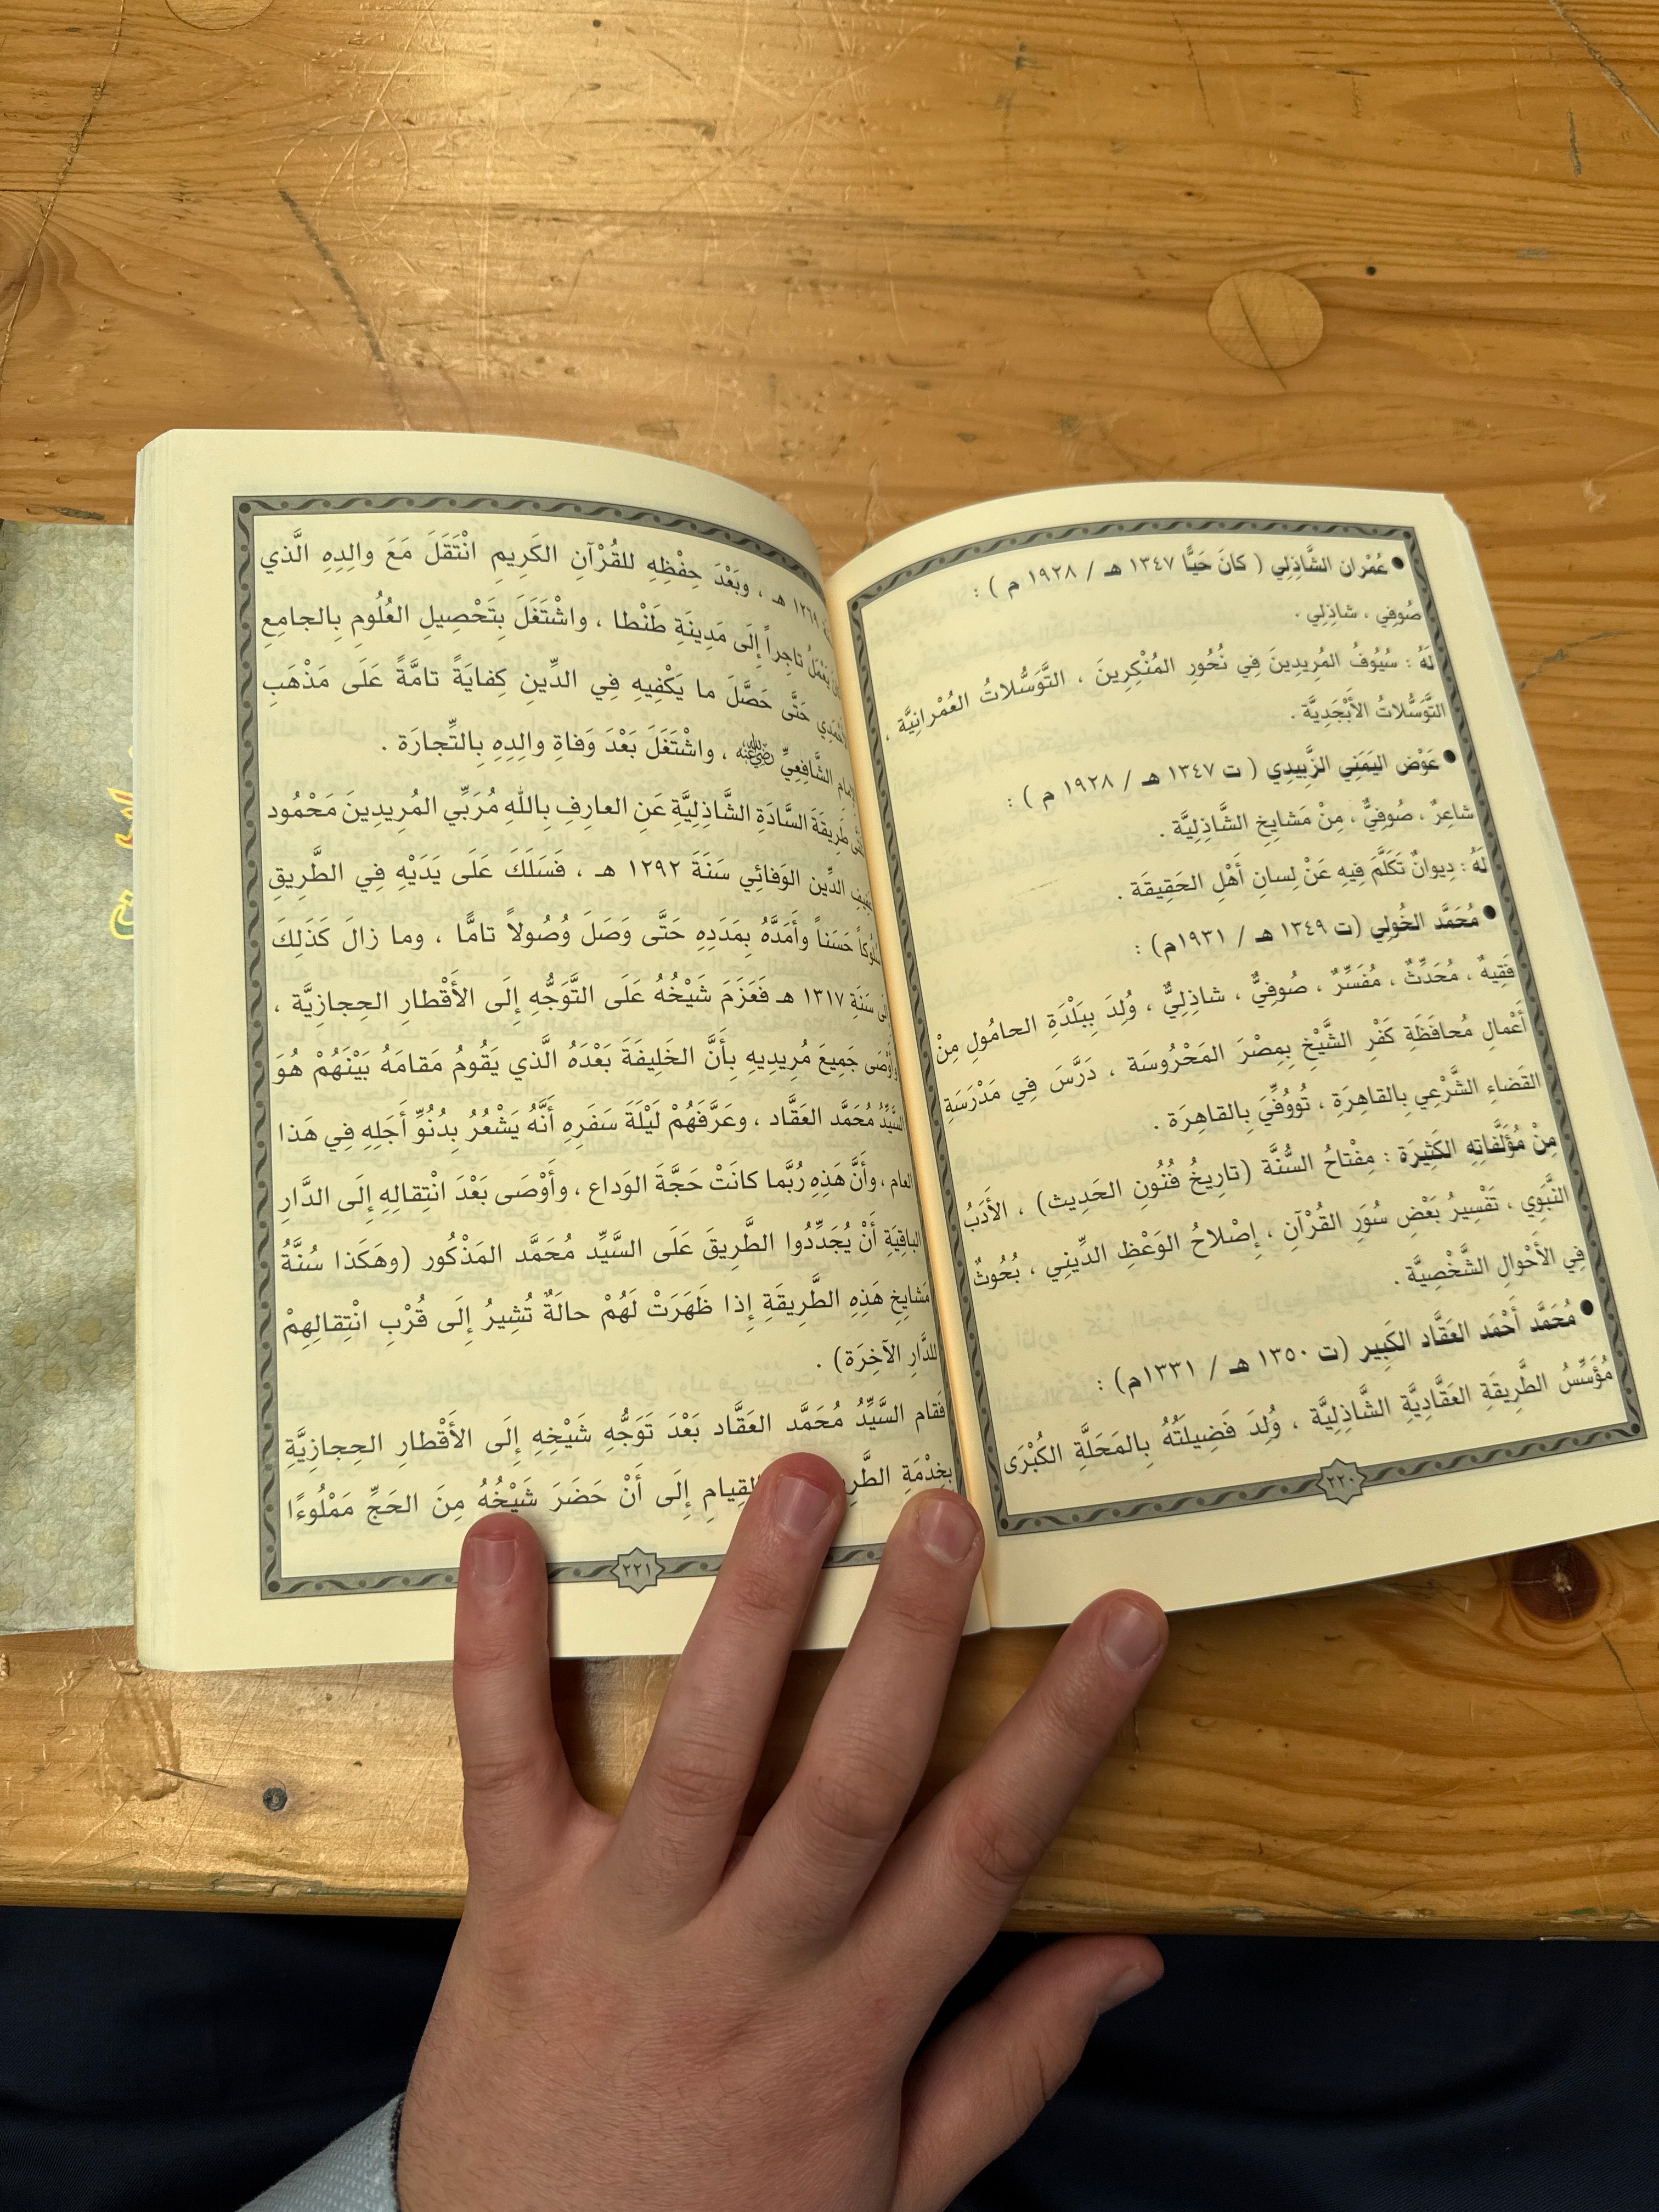 ● عُمْران الشَّاذِلِي ( كانَ حَيًّا ١٣٤٧ هـ / ١٩٢٨ م ) :
صُوفِي ، شاذِلِي .
لَهُ : سُيُوفُ المُرِيدِينَ فِي نُحُورِ المُنْكِرِينَ ، التَّوَسُّلاتُ العُمْرانِيَّة ،
التَّوَسُّلاتُ الأَبْجَدِيَّة .
● عَوَض اليَمَنِي الزَّبِيدِي ( ت ١٣٤٧ هـ / ١٩٢٨ م ) :
شاعِرٌ ، صُوفِيٌّ ، مِنْ مَشايِخِ الشَّاذِلِيَّة .
لَهُ : دِيوانٌ تَكَلَّمَ فِيهِ عَنْ لِسانِ أَهْلِ الحَقِيقَة .
● مُحَمَّد الخُولِي (ت ١٣٤٩ هـ / ١٩٣١م) :
فَقِيهٌ ، مُحَدِّثٌ ، مُفَسِّرٌ ، صُوفِيٌّ ، شاذِلِيٌّ ، وُلِدَ بِبَلْدَةِ الحامُولِ مِنْ
أَعْمالِ مُحافَظَةِ كَفْرِ الشَّيْخِ بِمِصْرَ المَحْرُوسَة ، دَرَّسَ فِي مَدْرَسَةِ
القَضاءِ الشَّرْعِي بِالقاهِرَةِ ، تُووُفِّيَ بِالقاهِرَة .
مِنْ مُؤَلَّفاتِهِ الكَثِيرَة : مِفْتاحُ السُّنَّة (تارِيخُ فُنُونِ الحَدِيث) ، الأَدَبُ
النَّبَوِي ، تَفْسِيرُ بَعْضِ سُوَرِ القُرْآن ، إِصْلاحُ الوَعْظِ الدِّينِي ، بُحُوثٌ
فِي الأَحْوالِ الشَّخْصِيَّة .
● مُحَمَّد أَحْمَد العَقَّاد الكَبِير (ت ١٣٥٠ هـ / ١٣٣١م) :
مُؤَسِّسُ الطَّرِيقَةِ العَقَّادِيَّةِ الشَّاذِلِيَّة ، وُلِدَ فَضِيلَتُهُ بِالمَحَلَّةِ الكُبْرَى
٢٢٠
١٢٦٩ هـ ، وبَعْدَ حِفْظِهِ للقُرْآنِ الكَرِيمِ انْتَقَلَ مَعَ والِدِهِ الَّذي
يَعْمَلُ تاجِراً إِلَى مَدِينَةِ طَنْطا ، واشْتَغَلَ بِتَحْصِيلِ العُلُومِ بِالجامِعِ
حَتَّى حَصَّلَ ما يَكْفِيهِ فِي الدِّينِ كِفايَةً تامَّةً عَلَى مَذْهَبِ
الشَّافِعِيِّ رضي الله عنه ، واشْتَغَلَ بَعْدَ وَفاةِ والِدِهِ بِالتِّجارَة .
طَرِيقَةَ السَّادَةِ الشَّاذِلِيَّةِ عَنِ العارِفِ بِاللهِ مُرَبِّي المُرِيدِينَ مَحْمُود
الدِّين الوَفائِي سَنَةَ ١٢٩٢ هـ ، فَسَلَكَ عَلَى يَدَيْهِ فِي الطَّرِيقِ
سُلُوكاً حَسَناً وأَمَدَّهُ بِمَدَدِهِ حَتَّى وَصَلَ وُصُولاً تامًّا ، وما زالَ كَذَلِكَ
سَنَةِ ١٣١٧ هـ فَعَزَمَ شَيْخُهُ عَلَى التَّوَجُّهِ إِلَى الأَقْطارِ الحِجازِيَّة ،
وأَوْصَى جَمِيعَ مُرِيدِيهِ بِأَنَّ الخَلِيفَةَ بَعْدَهُ الَّذي يَقُومُ مَقامَهُ بَيْنَهُمْ هُوَ
السَّيِّدُ مُحَمَّد العَقَّاد ، وعَرَّفَهُمْ لَيْلَةَ سَفَرِهِ أَنَّهُ يَشْعُرُ بِدُنُوِّ أَجَلِهِ فِي هَذا
العام ، وأَنَّ هَذِهِ رُبَّما كانَتْ حَجَّةَ الوَداع ، وأَوْصَى بَعْدَ انْتِقالِهِ إِلَى الدَّارِ
الباقِيَةِ أَنْ يُجَدِّدُوا الطَّرِيقَ عَلَى السَّيِّد مُحَمَّد المَذْكُور (وهَكَذا سُنَّةُ
مَشايِخِ هَذِهِ الطَّرِيقَةِ إِذا ظَهَرَتْ لَهُمْ حالَةٌ تُشِيرُ إِلَى قُرْبِ انْتِقالِهِمْ
للدَّارِ الآخِرَة) .
فَقام السَّيِّدُ مُحَمَّد العَقَّاد بَعْدَ تَوَجُّهِ شَيْخِهِ إِلَى الأَقْطارِ الحِجازِيَّةِ
بِخِدْمَةِ القِيامِ إِلَى أَنْ حَضَرَ شَيْخُهُ مِنَ الحَجِّ مَمْلُوءًا
٢٢١